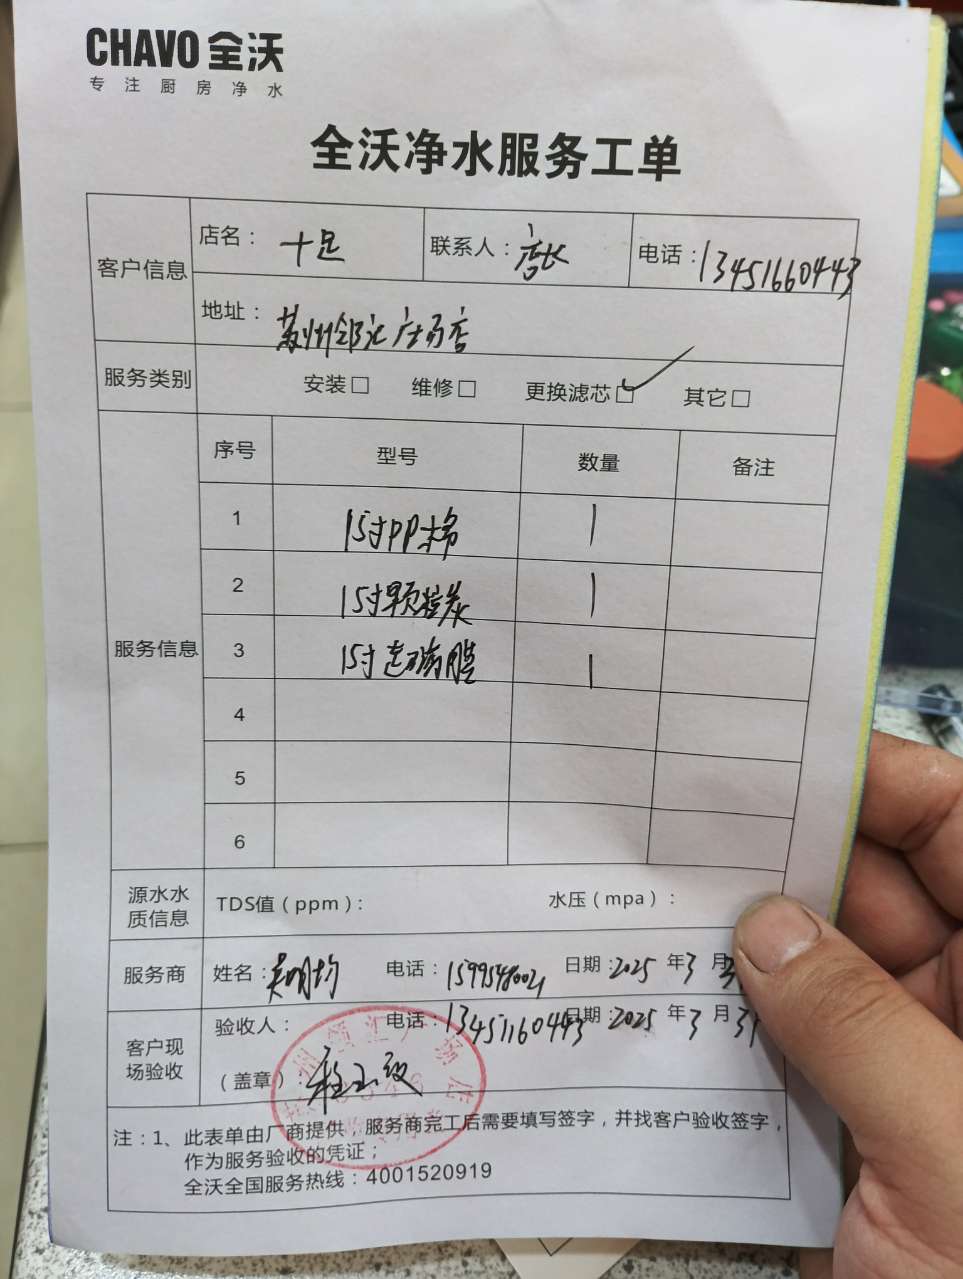 CHAVO 全沃
专注厨房净水
全沃净水服务工单
客户信息
店名：十足 联系人：店长 电话：13451660443
地址：苏州邻汇广场店
服务类别 安装□ 维修□ 更换滤芯☑ 其它□
服务信息
序号 型号 数量 备注
1 15寸PP棉 1
2 15寸颗粒炭 1
3 15寸超滤膜 1
4
5
6
源水水质信息 TDS值（ppm）： 水压（mpa）：
服务商 姓名：吴明均 电话：1599548002 日期：2025 年 3 月
客户现场验收
验收人： 电话：13451160443 日期：2025 年 3 月 31
（盖章）：
注：1、此表单由厂商提供，服务商完工后需要填写签字，并找客户验收签字，
作为服务验收的凭证；
全沃全国服务热线：4001520919